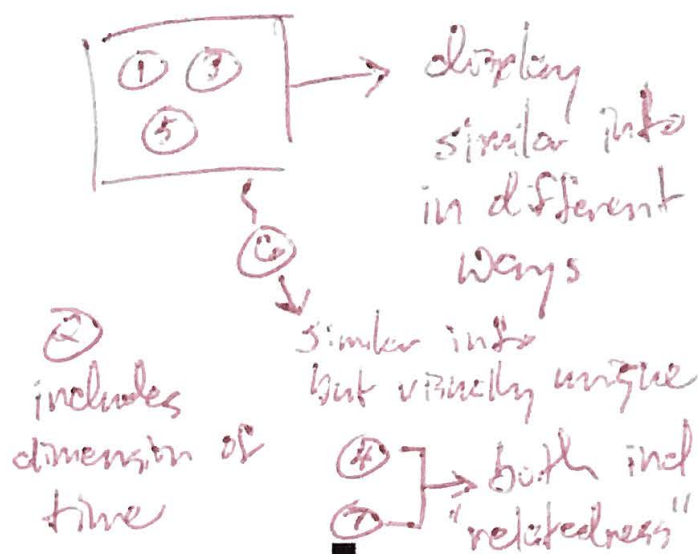 ① ③
⑤
display
similar info
in different
ways
⑥
similar info
but visually unique
②
includes
dimension of
time
④
⑦
both ind
"relatedness"